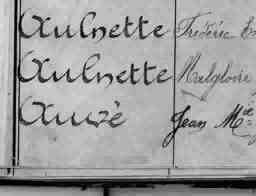 Aulnette Frédéric
Aulnette Malgloire
Auzé Jean Mie